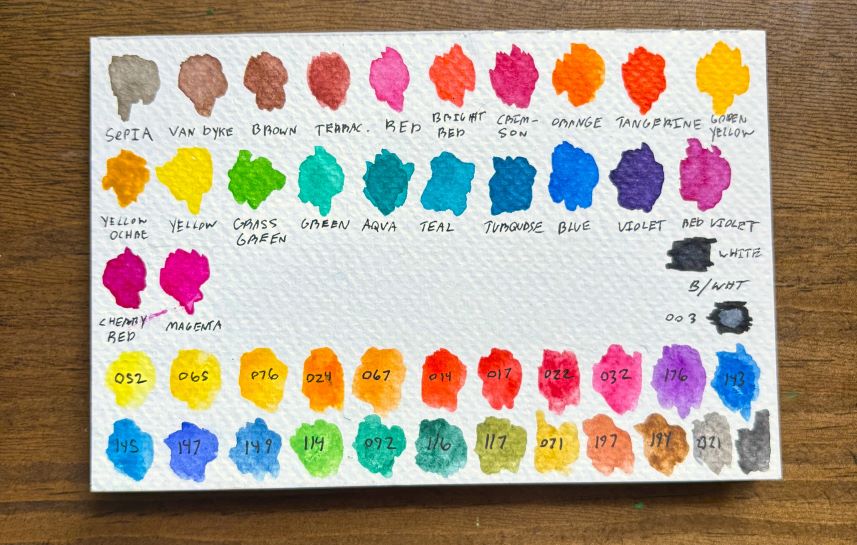 SEPIA VAN DYKE BROWN TERRAC. RED BRIGHT RED CRIM-SON ORANGE TANGERINE GOLDEN YELLOW
YELLOW OCHRE YELLOW GRASS GREEN GREEN AQVA TEAL TURQUOSE BLUE VIOLET RED VIOLET
WHITE
B/WHT
CHERRY RED MAGENTA 003
052 065 076 024 067 014 017 022 032 176 143
145 147 149 114 092 116 117 071 197 194 321